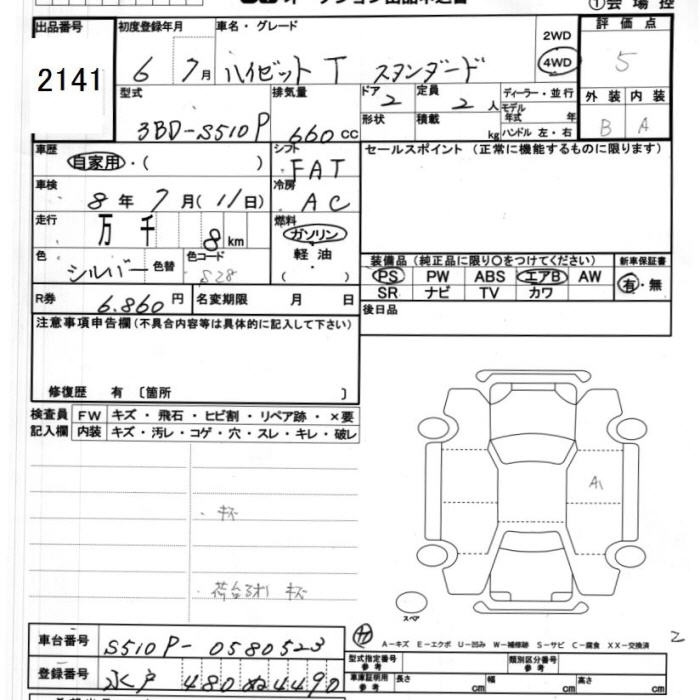 オークション出品申込書 ①会場控
出品番号 初度登録年月 車名・グレード 評価点
2141 6 7月 ハイゼット T スタンダード 2WD 4WD 5
型式 排気量 ドア 定員 ディーラー・並行 外装 内装
3BD-S510P 660 cc 2 2 人 モデル年式 年 B A
形状 積載 kg ハンドル 左・右
車歴 シフト セールスポイント (正常に機能するものに限ります)
自家用・( ) FAT
車検 冷房
8年 7月(11日) AC
走行 燃料
万 千 8 km ガソリン
軽油
( )
色 色替 色コード 装備品 (純正品に限り〇をつけてください) 新車保証書
シルバー S28 PS PW ABS エアB AW 有・無
SR ナビ TV カワ
R券 6,860 円 名変期限 月 日 後日品
注意事項申告欄(不具合内容等は具体的に記入して下さい)
修復歴 有 〔箇所 〕
検査員 FW キズ・飛石・ヒビ割・リペア跡・×要
記入欄 内装 キズ・汚レ・コゲ・穴・スレ・キレ・破レ
A1
・キズ
キズ
スペア
車台番号 S510P-0580523
A-キズ E-エクボ U-凹み W-補修跡 S-サビ C-腐食 XX-交換済 2
登録番号 水戸 480 ぬ 4490
型式指定番号 参考 類別区分番号 参考
車庫証明用 参考 長さ cm 幅 cm 高さ cm